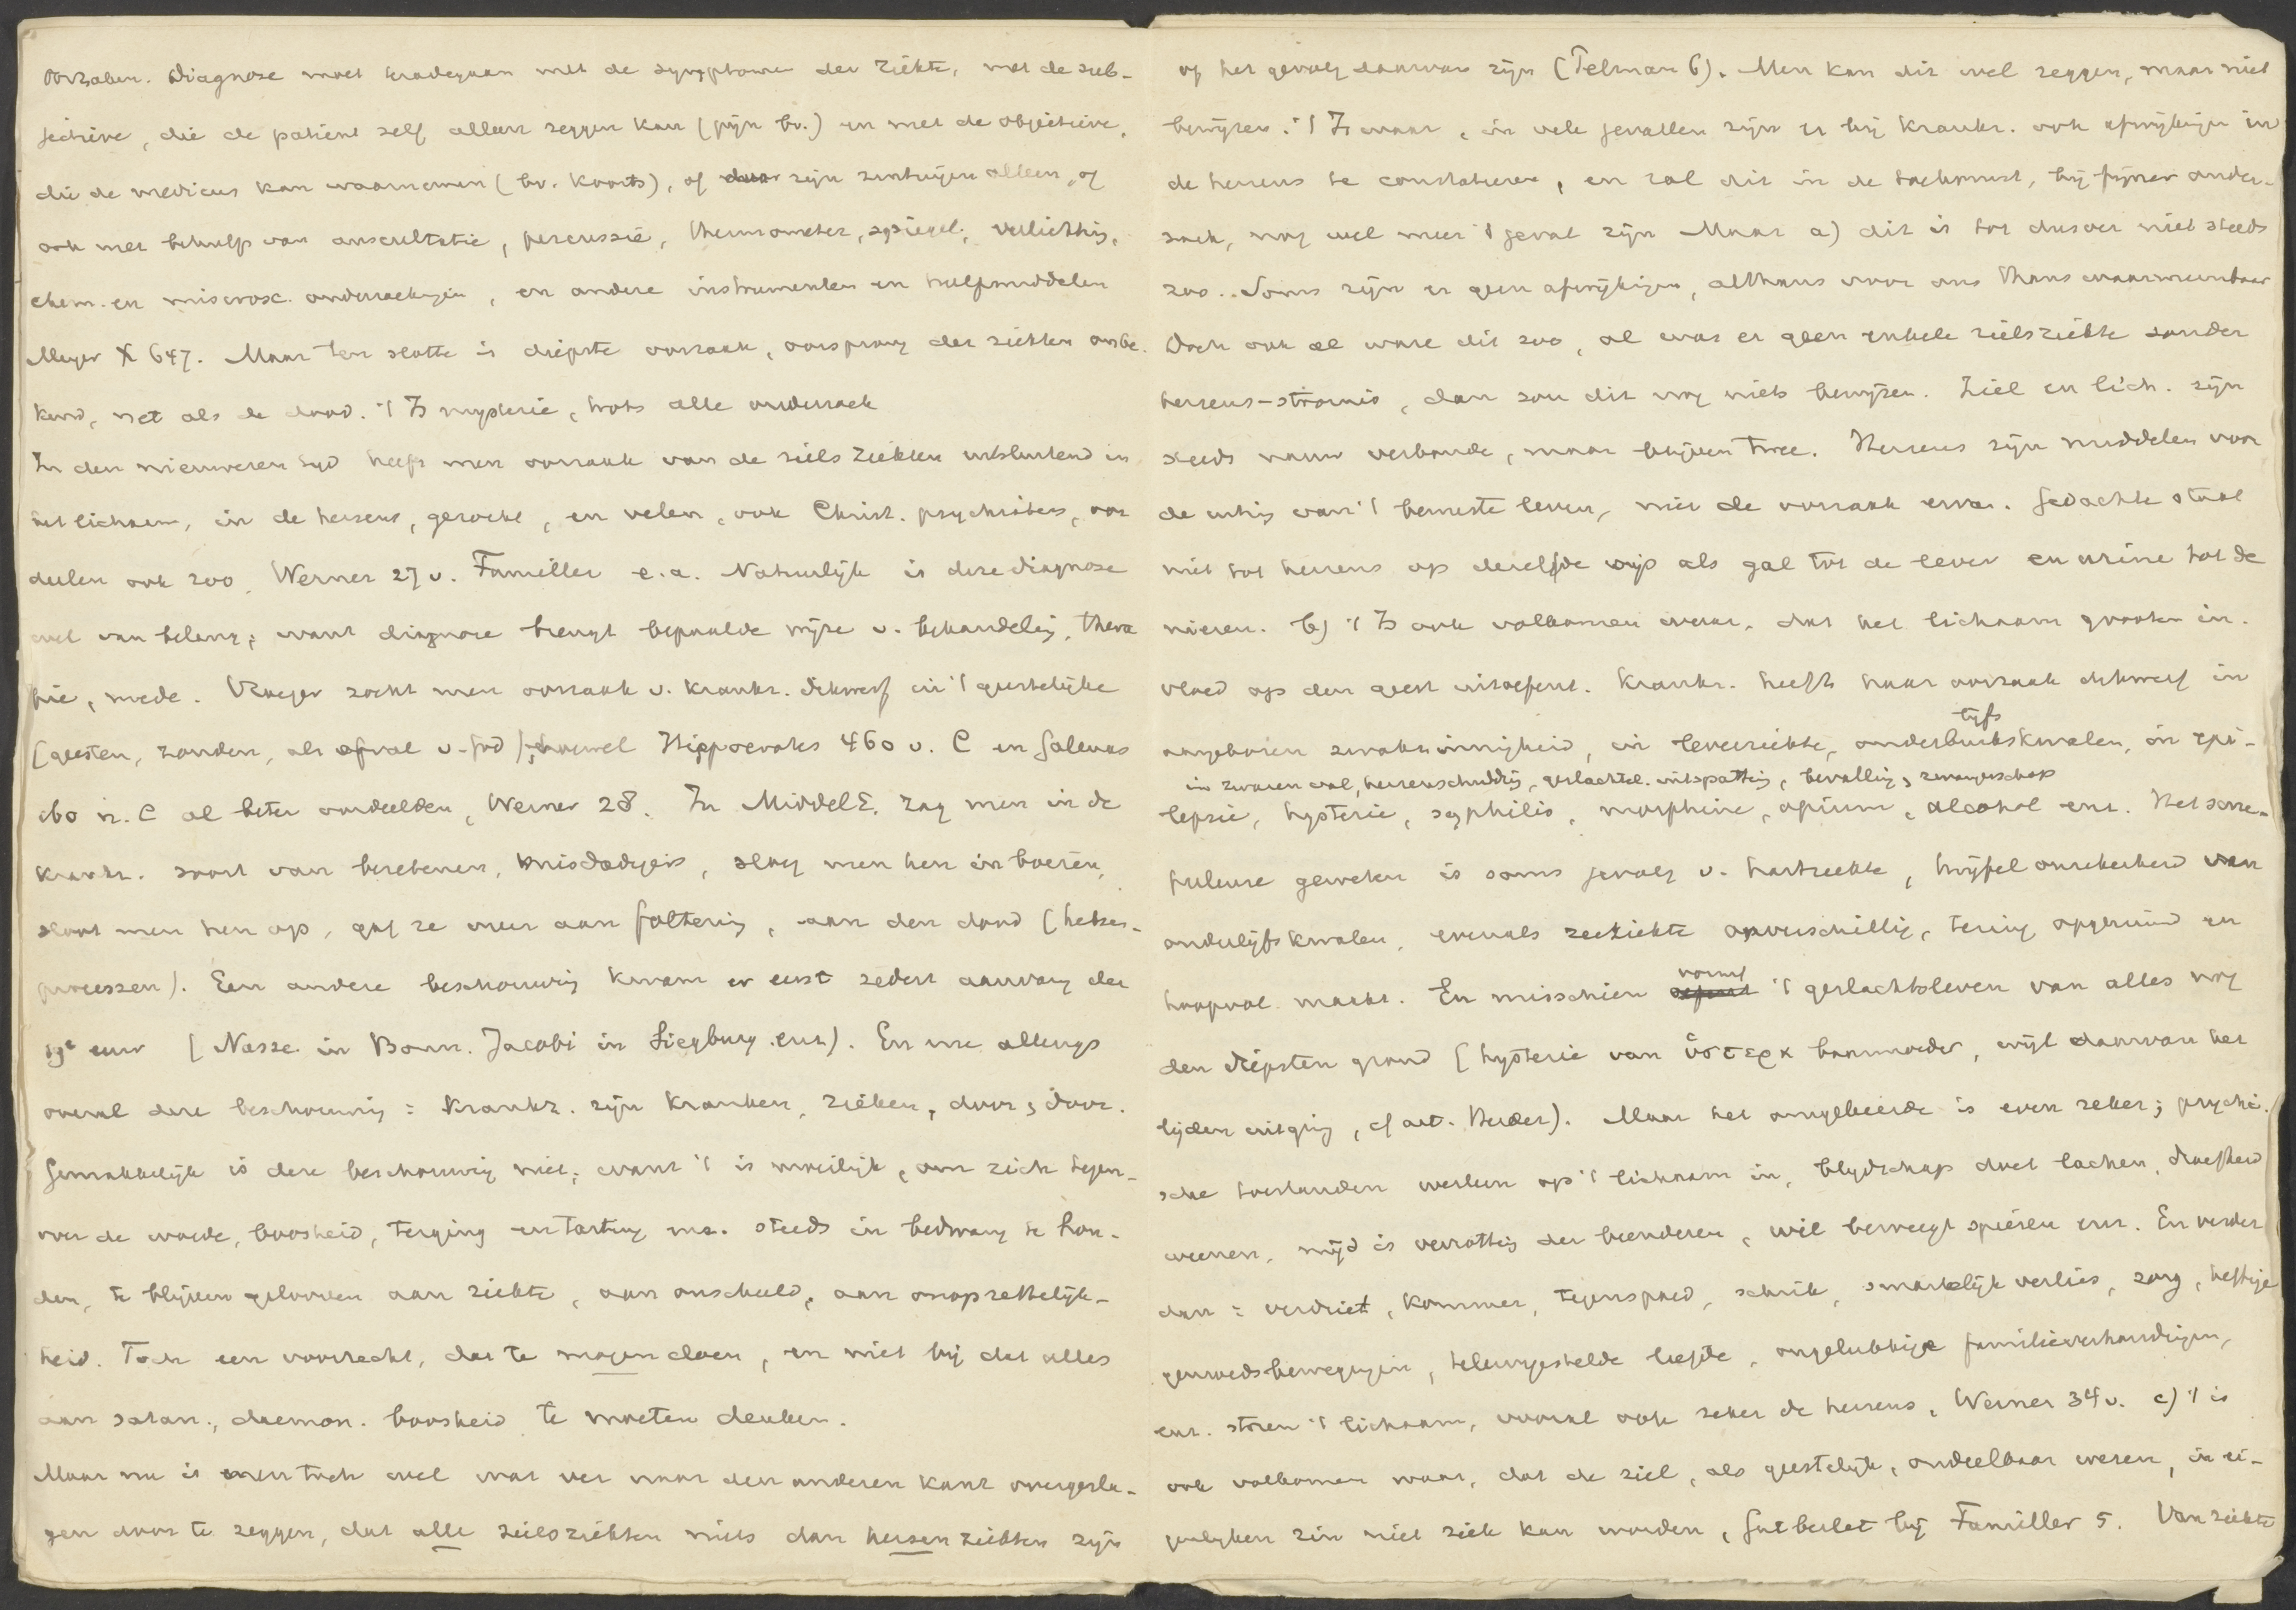 oorzaken. Diagnose moet te rade gaan met de symptomen der ziekte, met de sub-
jectieve, die de patient zelf alleen zeggen kan (pijn bv.) en met de objectieve,
die de medicus kan waarnemen (bv. koorts), of door zijn zintuigen alleen, of
ook met behulp van auscultatie, percussie, thermometer, spiegel, verlichting,
chem. en microsc. onderzoekingen, en andere instrumenten en hulpmiddelen
Meyer X 647. Maar ten slotte is diepste oorzaak, oorsprong der ziekten onbe-
kend, net als de dood. 't Is mysterie, trots alle onderzoek
In den nieuweren tijd heeft men oorzaak van de zielsziekten uitsluitend in
het lichaam, in de hersens, gezocht, en velen, ook Christ. psychiaters, oor
deelen ook zoo, Werner 27 v. Familler e.a. Natuurlijk is deze diagnose
wel van belang; want diagnose brengt bepaalde wijze v. behandeling, thera
pie, mede. Vroeger zocht men oorzaak v. krankz. dikwerf in 't geestelijke
(geesten, zonden, als afval v. God), hoewel Hippocrates 460 v. C en Galenus
160 n. C al beter oordeelden, Werner 28. In MiddelE. zag men in de
krankz. soort van bezetenen, misdadigers, sloeg men hen in boeien,
sloot men hen op, gaf ze over aan foltering, aan den dood (heksen-
processen). Een andere beschouwing kwam er eerst sedert aanvang der
19e eeuw (Nasse in Bonn. Jacobi in Siegburg enz). En nu allengs
overal deze beschouwing: krankz. zijn kranken, zieken, door en door.
Gemakkelijk is deze beschouwing niet; want 't is moeilijk, om zich tegen-
over de woede, boosheid, terging en tarting enz. steeds in bedwang te hou-
den, te blijven gelooven aan ziekte, aan onschuld, aan onopzettelijk-
heid. Toch een voorrecht, dat te mogen doen, en niet bij dat alles
aan satan., daemon. boosheid te moeten denken.
Maar nu is men toch wel wat ver naar den anderen kant overgesla-
gen door te zeggen, dat alle zielsziekten niets dan hersenziekten zijn
of het gevolg daarvan zijn (Telman 6). Men kan dit wel zeggen, maar niet
bewijzen. 't Is waar, in vele gevallen zijn er bij krankz. ook afwijkingen in
de hersens te constateeren, en zal dit in de toekomst, bij fijner onder-
zoek, nog wel meer 't geval zijn Maar a) dit is tot dusver niet steeds
zoo. Soms zijn er geen afwijkingen, althans voor ons thans waarneembaar
Doch ook al ware dit zoo, al was er geen enkele zielsziekte zonder
hersens-stoornis, dan zou dit nog niets bewijzen. Ziel en lich. zijn
steeds nauw verbonden, maar blijven twee. Hersens zijn middelen voor
de uiting van 't bewuste leven, niet de oorzaak ervan. Gedachte staat
niet tot hersens op dezelfde wijs als gal tot de lever en urine tot de
nieren. b) 't Is ook volkomen waar, dat het lichaam grooten in-
vloed op den geest uitoefent. Krankz. heeft haar oorzaak dikwerf in
aangeboren zwakzinnigheid, in leverziekte, onderbuikskwalen, in epi-
lijfs
in zwaren val, hersenschudding, geslachtel. uitspatting, bevalling, zwangerschap
lepsie, hysterie, syphilis, morphine, opium, alcohol enz. Het
geweten is soms gevolg v. hartziekte, twijfel onzekerheid van
onderlijfskwalen, evenals zeeziekte onverschillig, tering opgeruimd en
hoopvol maakt. En misschien vormt 't geslachtsleven van alles nog
den diepsten grond (hysterie van ὑστερα baarmoeder, wijl daarvan het
lijden uitging, cf art. Herder). Maar het omgekeerde is even zeker; psychi-
sche toestanden werken op 't lichaam in, blijdschap doet lachen, droefheid
weenen, nijd is verrotting der beenderen, wil beweegt spieren enz. En verder
dan: verdriet, kommer, tegenspoed, schrik, smartelijk verlies, zorg, heftige
gemoedsbewegingen, teleurgestelde liefde, ongelukkige familieverhoudingen,
enz. storen 't lichaam, vooral ook zeker de hersens, Werner 34 v. c) 't is
ook volkomen waar, dat de ziel, als geestelijk, ondeelbaar wezen, in ei-
genlijken zin niet ziek kan worden, Gutberlet bij Familler 5. Van ziekte